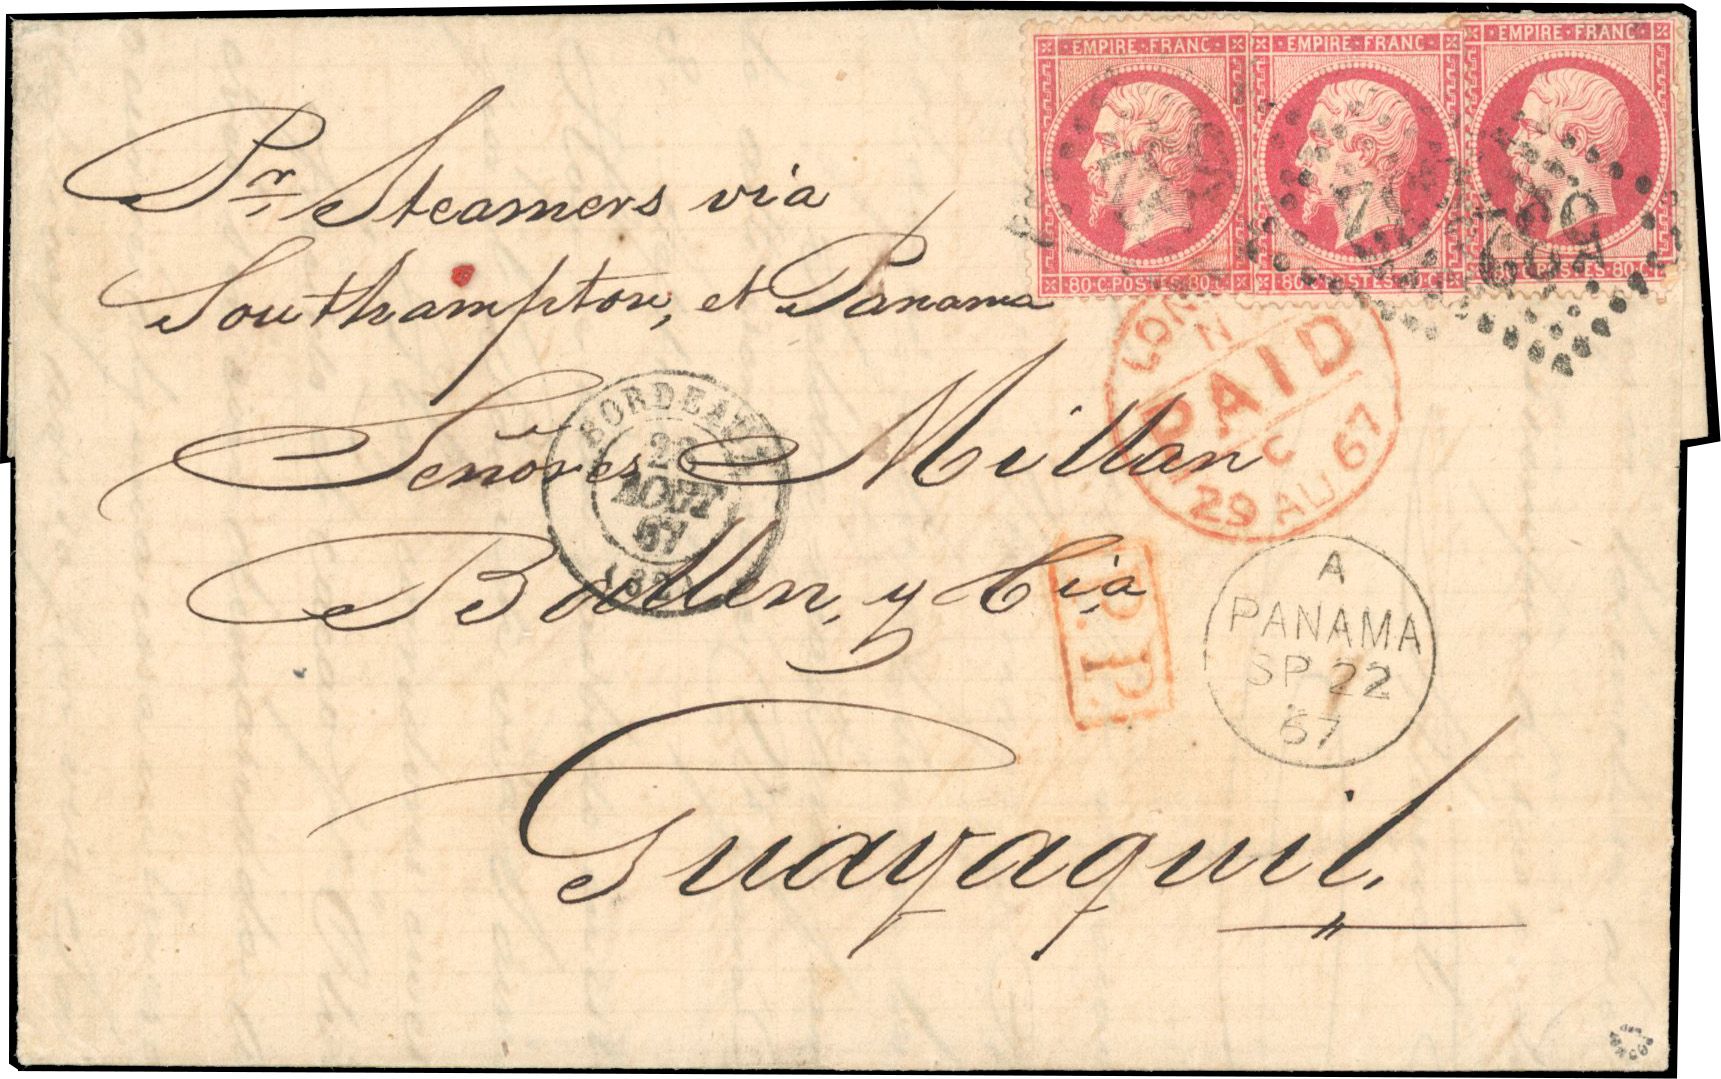 EMPIRE FRANC EMPIRE FRANC EMPIRE FRANC
80 C POSTES 80 C 80 C POSTES 80 C 80 C POSTES 80 C
Pr. Steamers via
Southampton, et Panama
PAID
C
29 AU 67
BORDEAUX
AOUT
67
Señores Millan
Bollen, y Cia
P.P.
A
PANAMA
SP 22
67
Guayaquil.